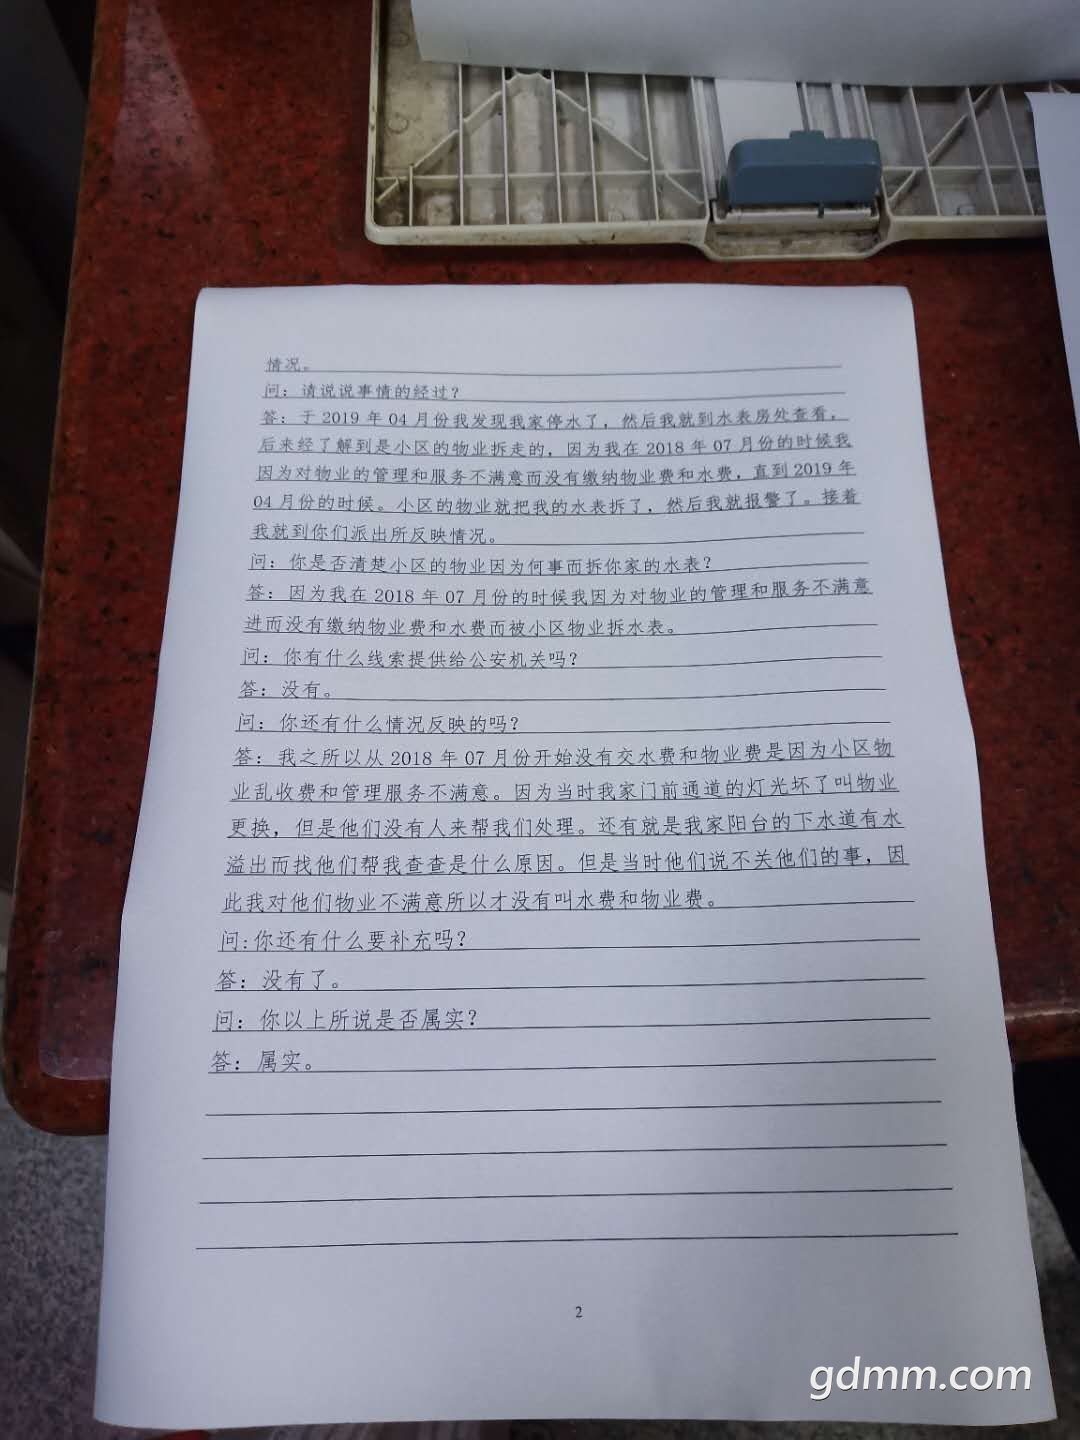 情况。
问：请说说事情的经过？
答：于 2019 年 04 月份我发现我家停水了，然后我就到水表房处查看，
后来经了解到是小区的物业拆走的，因为我在 2018 年 07 月份的时候我
因为对物业的管理和服务不满意而没有缴纳物业费和水费，直到 2019 年
04 月份的时候。小区的物业就把我的水表拆了，然后我就报警了。接着
我就到你们派出所反映情况。
问：你是否清楚小区的物业因为何事而拆你家的水表？
答：因为我在 2018 年 07 月份的时候我因为对物业的管理和服务不满意
进而没有缴纳物业费和水费而被小区物业拆水表。
问：你有什么线索提供给公安机关吗？
答：没有。
问：你还有什么情况反映的吗？
答：我之所以从 2018 年 07 月份开始没有交水费和物业费是因为小区物
业乱收费和管理服务不满意。因为当时我家门前通道的灯光坏了叫物业
更换，但是他们没有人来帮我们处理。还有就是我家阳台的下水道有水
溢出而找他们帮我查查是什么原因。但是当时他们说不关他们的事，因
此我对他们物业不满意所以才没有叫水费和物业费。
问:你还有什么要补充吗？
答：没有了。
问：你以上所说是否属实？
答：属实。
2
gdmm.com